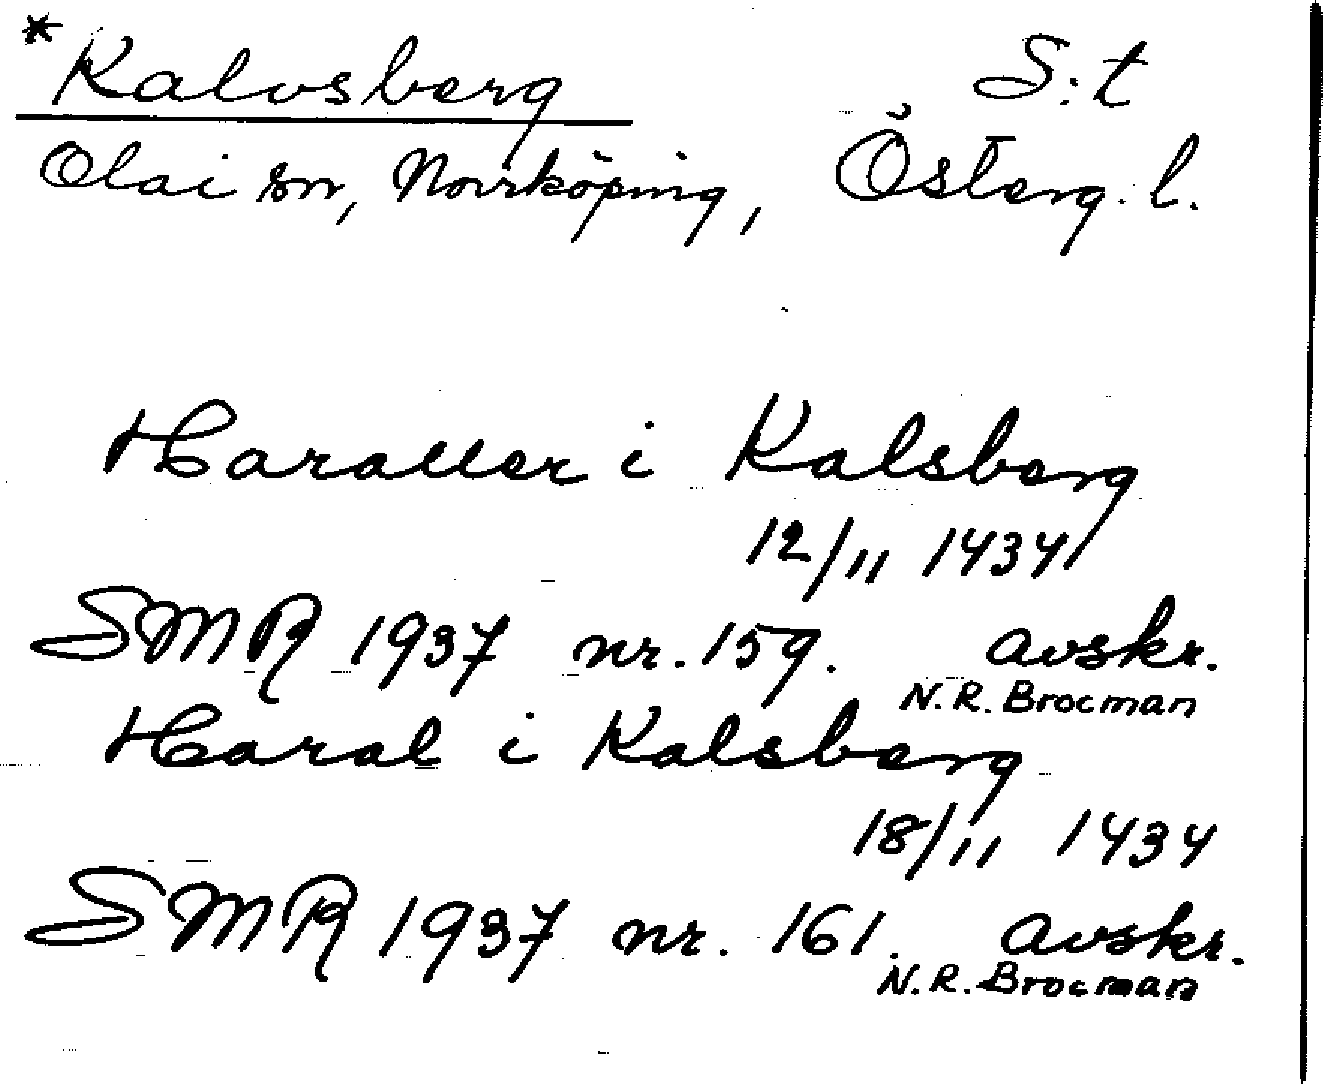 *Kalvsberg S:t
Olai sn, Norrköping, Österg. l.
Haraller i Kalsberg
12/11 1434
SMR 1937 nr. 159. avskr.
N.R. Brocman
Haral i Kalsberg
18/11 1434
SMR 1937 nr. 161. avskr.
N.R. Brocman